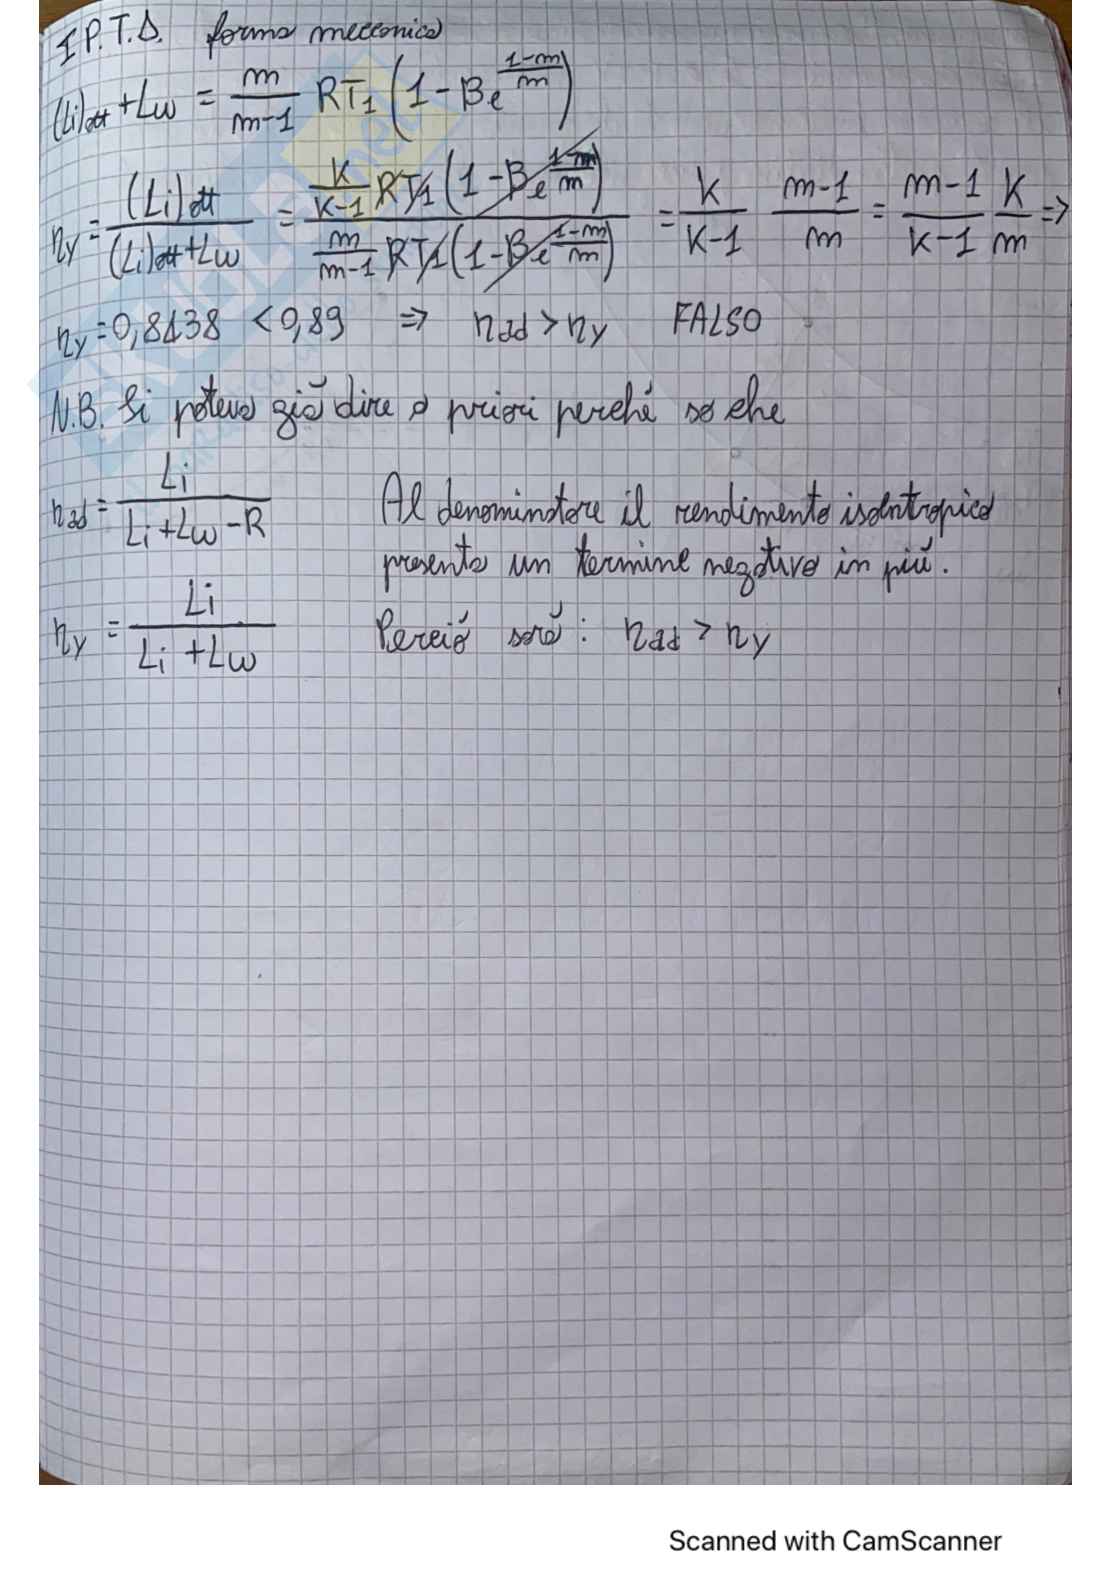 I P.T.D. forma meccanica
(Li)att + Lw = m/(m-1) RT1 (1 - Be^((1-m)/m))
ηy = (Li)att / ((Li)att + Lw) = (K/(K-1) RT1 (1 - Be^((1-m)/m))) / (m/(m-1) RT1 (1 - Be^((1-m)/m))) = K/(K-1) (m-1)/m = (m-1)/(K-1) K/m =>
ηy = 0,8138 < 0,89 => ηad > ηy FALSO
N.B. Si poteva già dire a priori perché so che
ηad = Li / (Li + Lw - R)
Al denominatore il rendimento isentropico
presenta un termine negativo in più.
ηy = Li / (Li + Lw)
Perciò sarà: ηad > ηy
Scanned with CamScanner